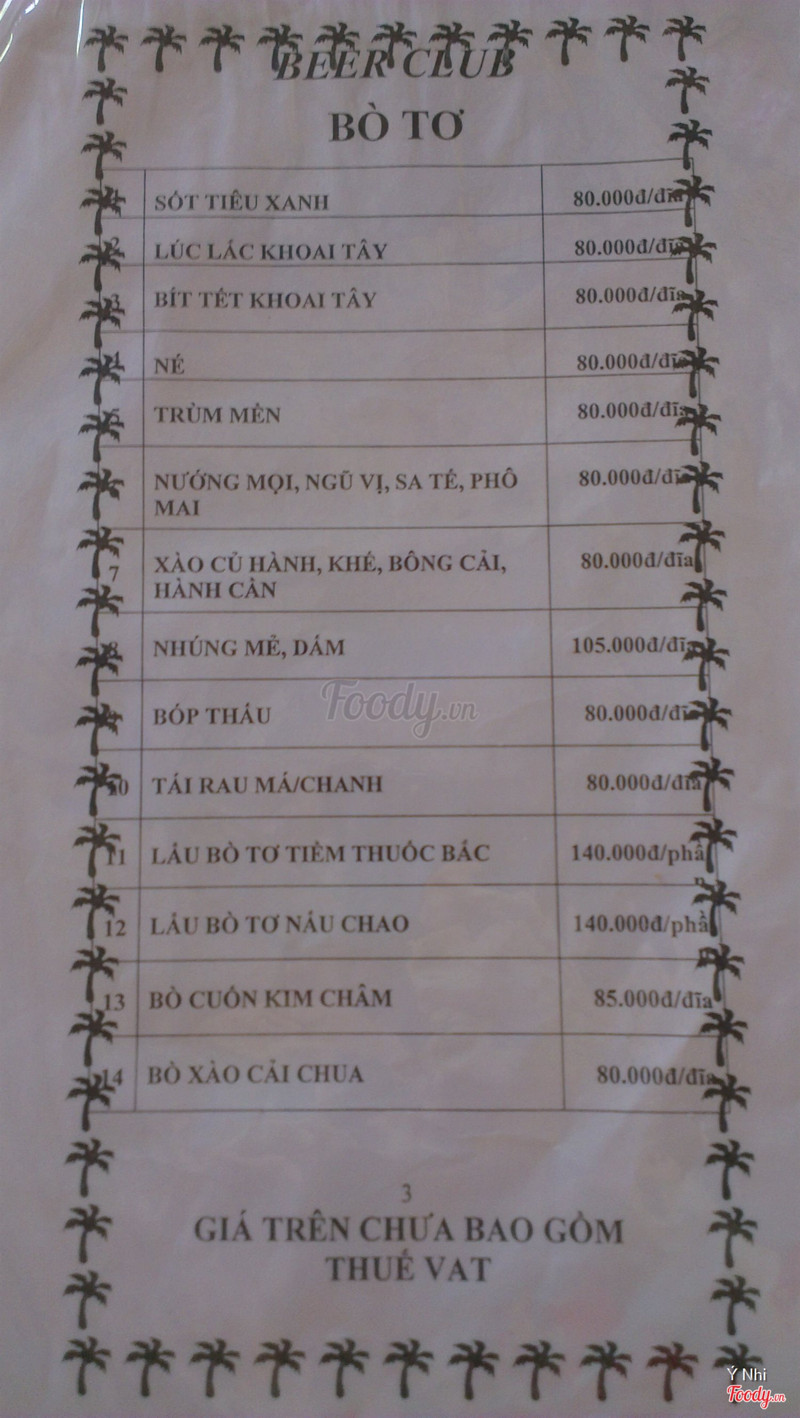 BEER CLUB
BÒ TƠ
1 SÓT TIÊU XANH 80.000đ/đĩa
2 LÚC LẮC KHOAI TÂY 80.000đ/đĩa
3 BÍT TẾT KHOAI TÂY 80.000đ/đĩa
4 NÉ 80.000đ/đĩa
5 TRÙM MỀN 80.000đ/đĩa
NƯỚNG MỌI, NGŨ VỊ, SA TẾ, PHÔ 80.000đ/đĩa
MAI
7 XÀO CỦ HÀNH, KHẾ, BÔNG CẢI, 80.000đ/đĩa
HÀNH CẦN
8 NHÚNG MẺ, DẤM 105.000đ/đĩa
9 BÓP THẤU 80.000đ/đĩa
10 TÁI RAU MÁ/CHANH 80.000đ/đĩa
11 LẨU BÒ TƠ TIỀM THUỐC BẮC 140.000đ/phầ
n
12 LẨU BÒ TƠ NẤU CHAO 140.000đ/phầ
n
13 BÒ CUỐN KIM CHÂM 85.000đ/đĩa
14 BÒ XÀO CẢI CHUA 80.000đ/đĩa
Foody.vn
3
GIÁ TRÊN CHƯA BAO GỒM
THUẾ VAT
Ý Nhi
Foody.vn